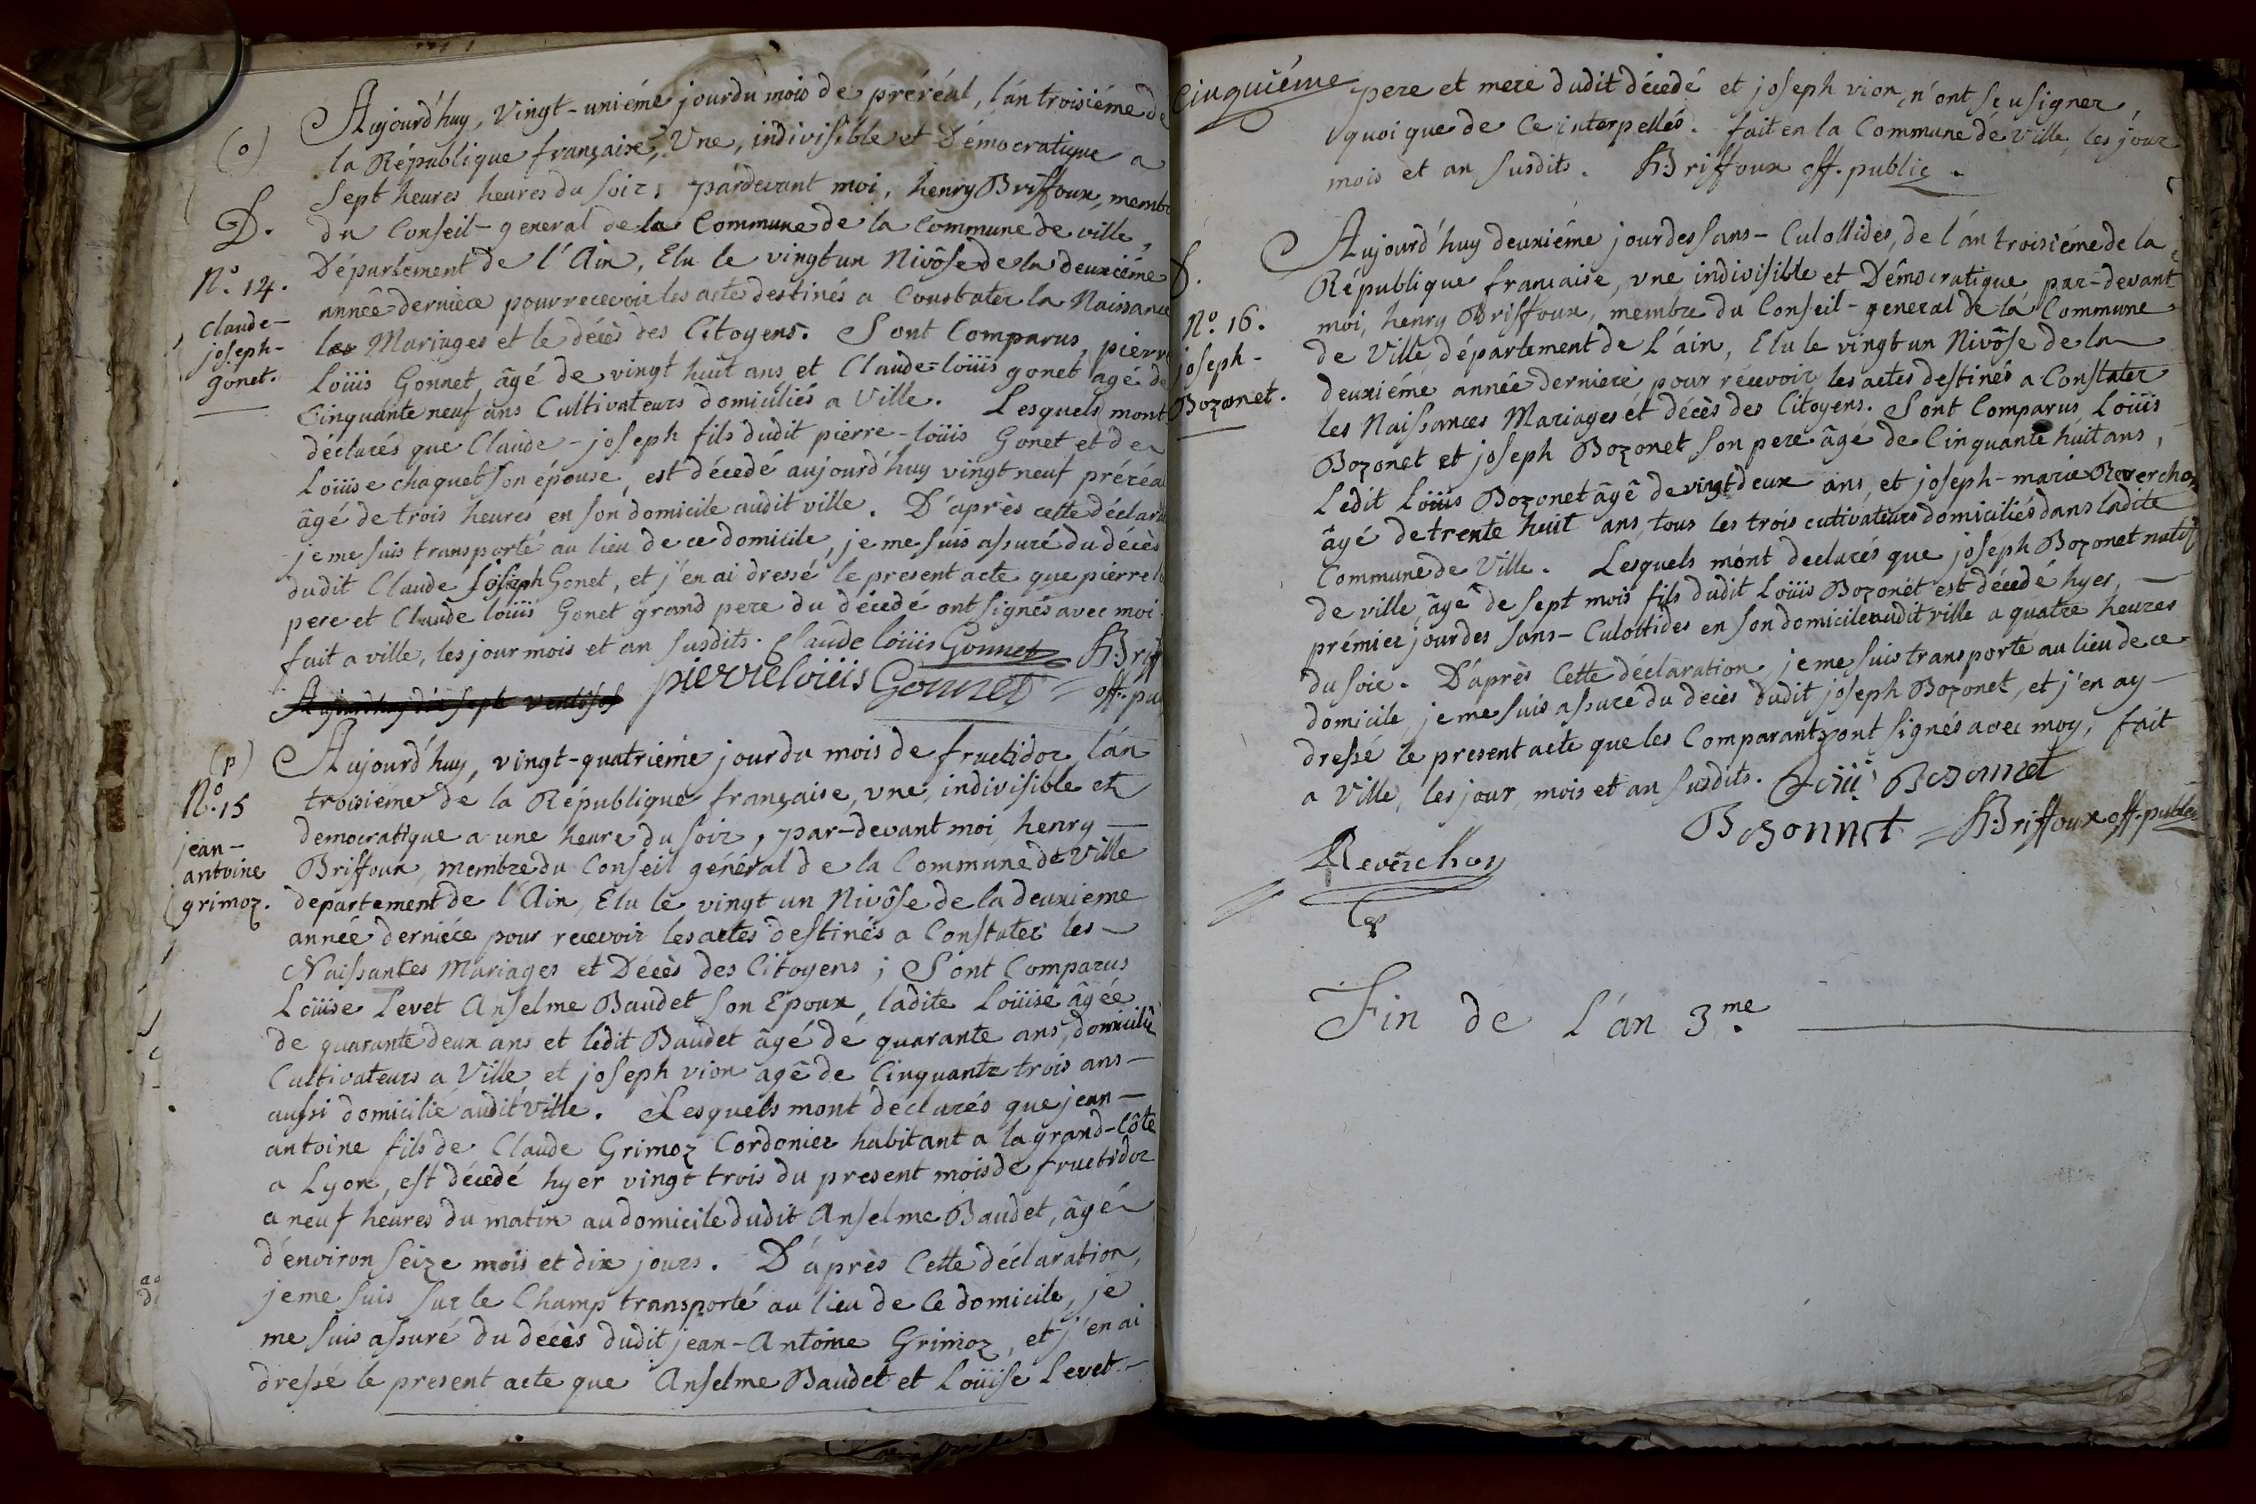 (o)
D.
N.o 14.
Claude-
joseph-
gonet.
Aujourd'huy, Vingt-uniéme jour du mois de préréal, l'án troisiéme de
la République française, Une, indivisible et Démocratique a
Sept heures heures du soir, pardevant moi, henry Briffoux, membr
du Conseil-general de la Commune de la Commune de ville,
Département de l'Ain, Elu le vingt un Nivôse de la deuxiéme
année derniere pour recevoir les acte destinés a Constater la Naissance
les Mariages et le décès des Citoyens. Sont Comparus, pierre
Loüis Gonnet, âgé de vingt huit ans et Claude-loüis gonet agé de
Cinquante neuf ans Cultivateurs domiciliés a Ville. Lesquels mont
déclarés que Claude-joseph fils dudit pierre-loüis Gonet et de
Loüise chaquet son épouse, est décedé aujourd'huy vingt neuf préréal
âgé de trois heures en son domicile audit ville. D'après cette déclara
je me suis transporté au lieu de ce domicile, je me suis assuré du decès
dudit Claude Joseph Gonet, et j'en ai dressé le present acte que pierre l
pere et Claude loüis Gonet grand pere du décedé ont signés avec moi
fait a ville, les jour mois et an susdits. Claude loüis Gonnet H. Brif
Aujourdhuy dix sept ventôse pierre loüis Gonnet off. pu
(p)
N.o 15
jean-
antoine
grimoz.
Aujourd'huy, vingt-quatriéme jour du mois de fructidor l'án
troisiéme de la République française, vne, indivisible et
democratique a une heure du soir, par-devant moi henry
Briffoux, membre du Conseil général de la Commune de Ville
departement de l'Ain, Elu le vingt un Nivôse de la deuxieme
année derniére pour recevoir les actes destinés a Constater les
Naissances Mariages et Décès des Citoyens; Sont Comparus
Loüise Levet Anselme Baudet son Epoux, ladite Loüise âgée
de quarante deux ans et ledit Baudet âgé de quarante ans, domicilié
Cultivateurs a Ville et joseph vion agé de Cinquante trois ans
aussi domicilié audit ville. Lesquels mont déclarés que jean-
antoine fils de Claude Grimoz Cordonier habitant a la grand-Côte
a Lyon, est décedé hyer vingt trois du present mois de fructidor
a neuf heures du matin au domicile dudit Anselme Baudet, âgé
d'environ seize mois et dix jours. D'áprès Cette déclaration,
je me suis sur le Champ transporté au lieu de Ce domicile, je
me suis assuré du décès dudit jean-Antoine Grimoz, et j'en ai
dressé le present acte que Anselme Baudet et Loüise Levet
Cinquiéme
pere et mere dudit décedé et joseph vion, n'ont seu signer,
quoique de Ce interpellés. fait en la Commune de Ville, les jour
mois et an susdits. H. Briffoux off. public.
N.o 16.
joseph-
Bozonet.
Aujourd'huy deuxiéme jour des sans-Culottides, de l'án troisiéme de la
République française, vne indivisible et Démocratique par-devant
moi, henry Briffoux, membre du Conseil-general de la Commune
de Ville département de L'áin, Elu le vingt un Nivôse de la
deuxiéme année derniere pour recevoir les actes destinés a Constater
les Naissances Mariages et décès des Citoyens. Sont Comparus Loüis
Bozonet et joseph Bozonet son pere âgé de Cinquante huit ans,
Ledit Loüis Bozonet âgé de vingt deux ans et joseph-marie Reverchon
âgé de trente huit ans, tous les trois cutivateurs domiciliés dans ladite
Commune de Ville. Lesquels mont declarés que joseph Bozonet natif
de ville âgé de sept mois fils dudit Loüis Bozonet est décedé hyer,
prémier jour des sans-Culottides en son domicile audit ville a quatre heures
du soir. D'áprès Cette déclaration, je me suis transporté au lieu de ce
domicile, je me suis assuré du decès dudit joseph Bozonet, et j'en ay
dressé le present acte que les Comparants ont signés avec moy, fait
a Ville, les jour, mois et an susdits. Loüi Bosonnet
Bosonnet H. Briffoux off. public
Reverchon
Fin de l'án 3.me